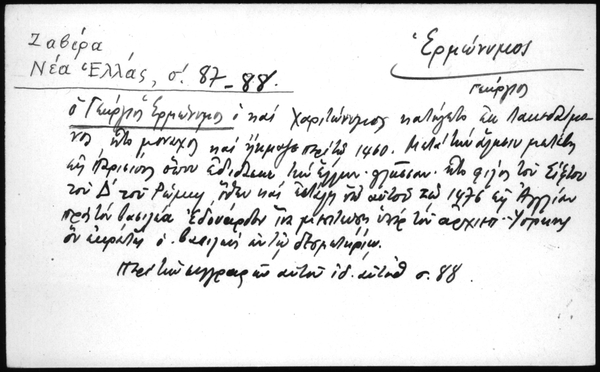 Ζαβίρα
Νέα Ἑλλάς, σ. 87-88.
Ἑρμώνυμος
Γεώργιος
ὁ Γεώργιος Ἑρμώνυμος ὁ καί Χαριτώνυμος κατήγετο ἐκ Λακεδαίμο
νος ἦτο μοναχός καί ἤκμαζε περί τό 1460. Μετά τήν ἅλωσιν μετέβη
εἰς Παρισίους ὅπου ἐδίδασκεν τήν ἑλλην. γλῶσσαν. ἦτο φίλος τοῦ Σίξτου
τοῦ Δ΄ τοῦ Ρώμης, ὅθεν καί ἐστάλη ὑπ' αὐτοῦ τῷ 1476 εἰς Ἀγγλίαν
πρός τόν βασιλέα Ἐδουάρδον ἵνα μεσιτεύσῃ ὑπέρ τοῦ ἀρχιεπ.
ὅν ἐκράτει ὁ βασιλεύς ἐν τῷ δεσμωτηρίῳ.
Περί τῶν συγγραφῶν αὐτοῦ ἰδ. αὐτόθ σ. 88.